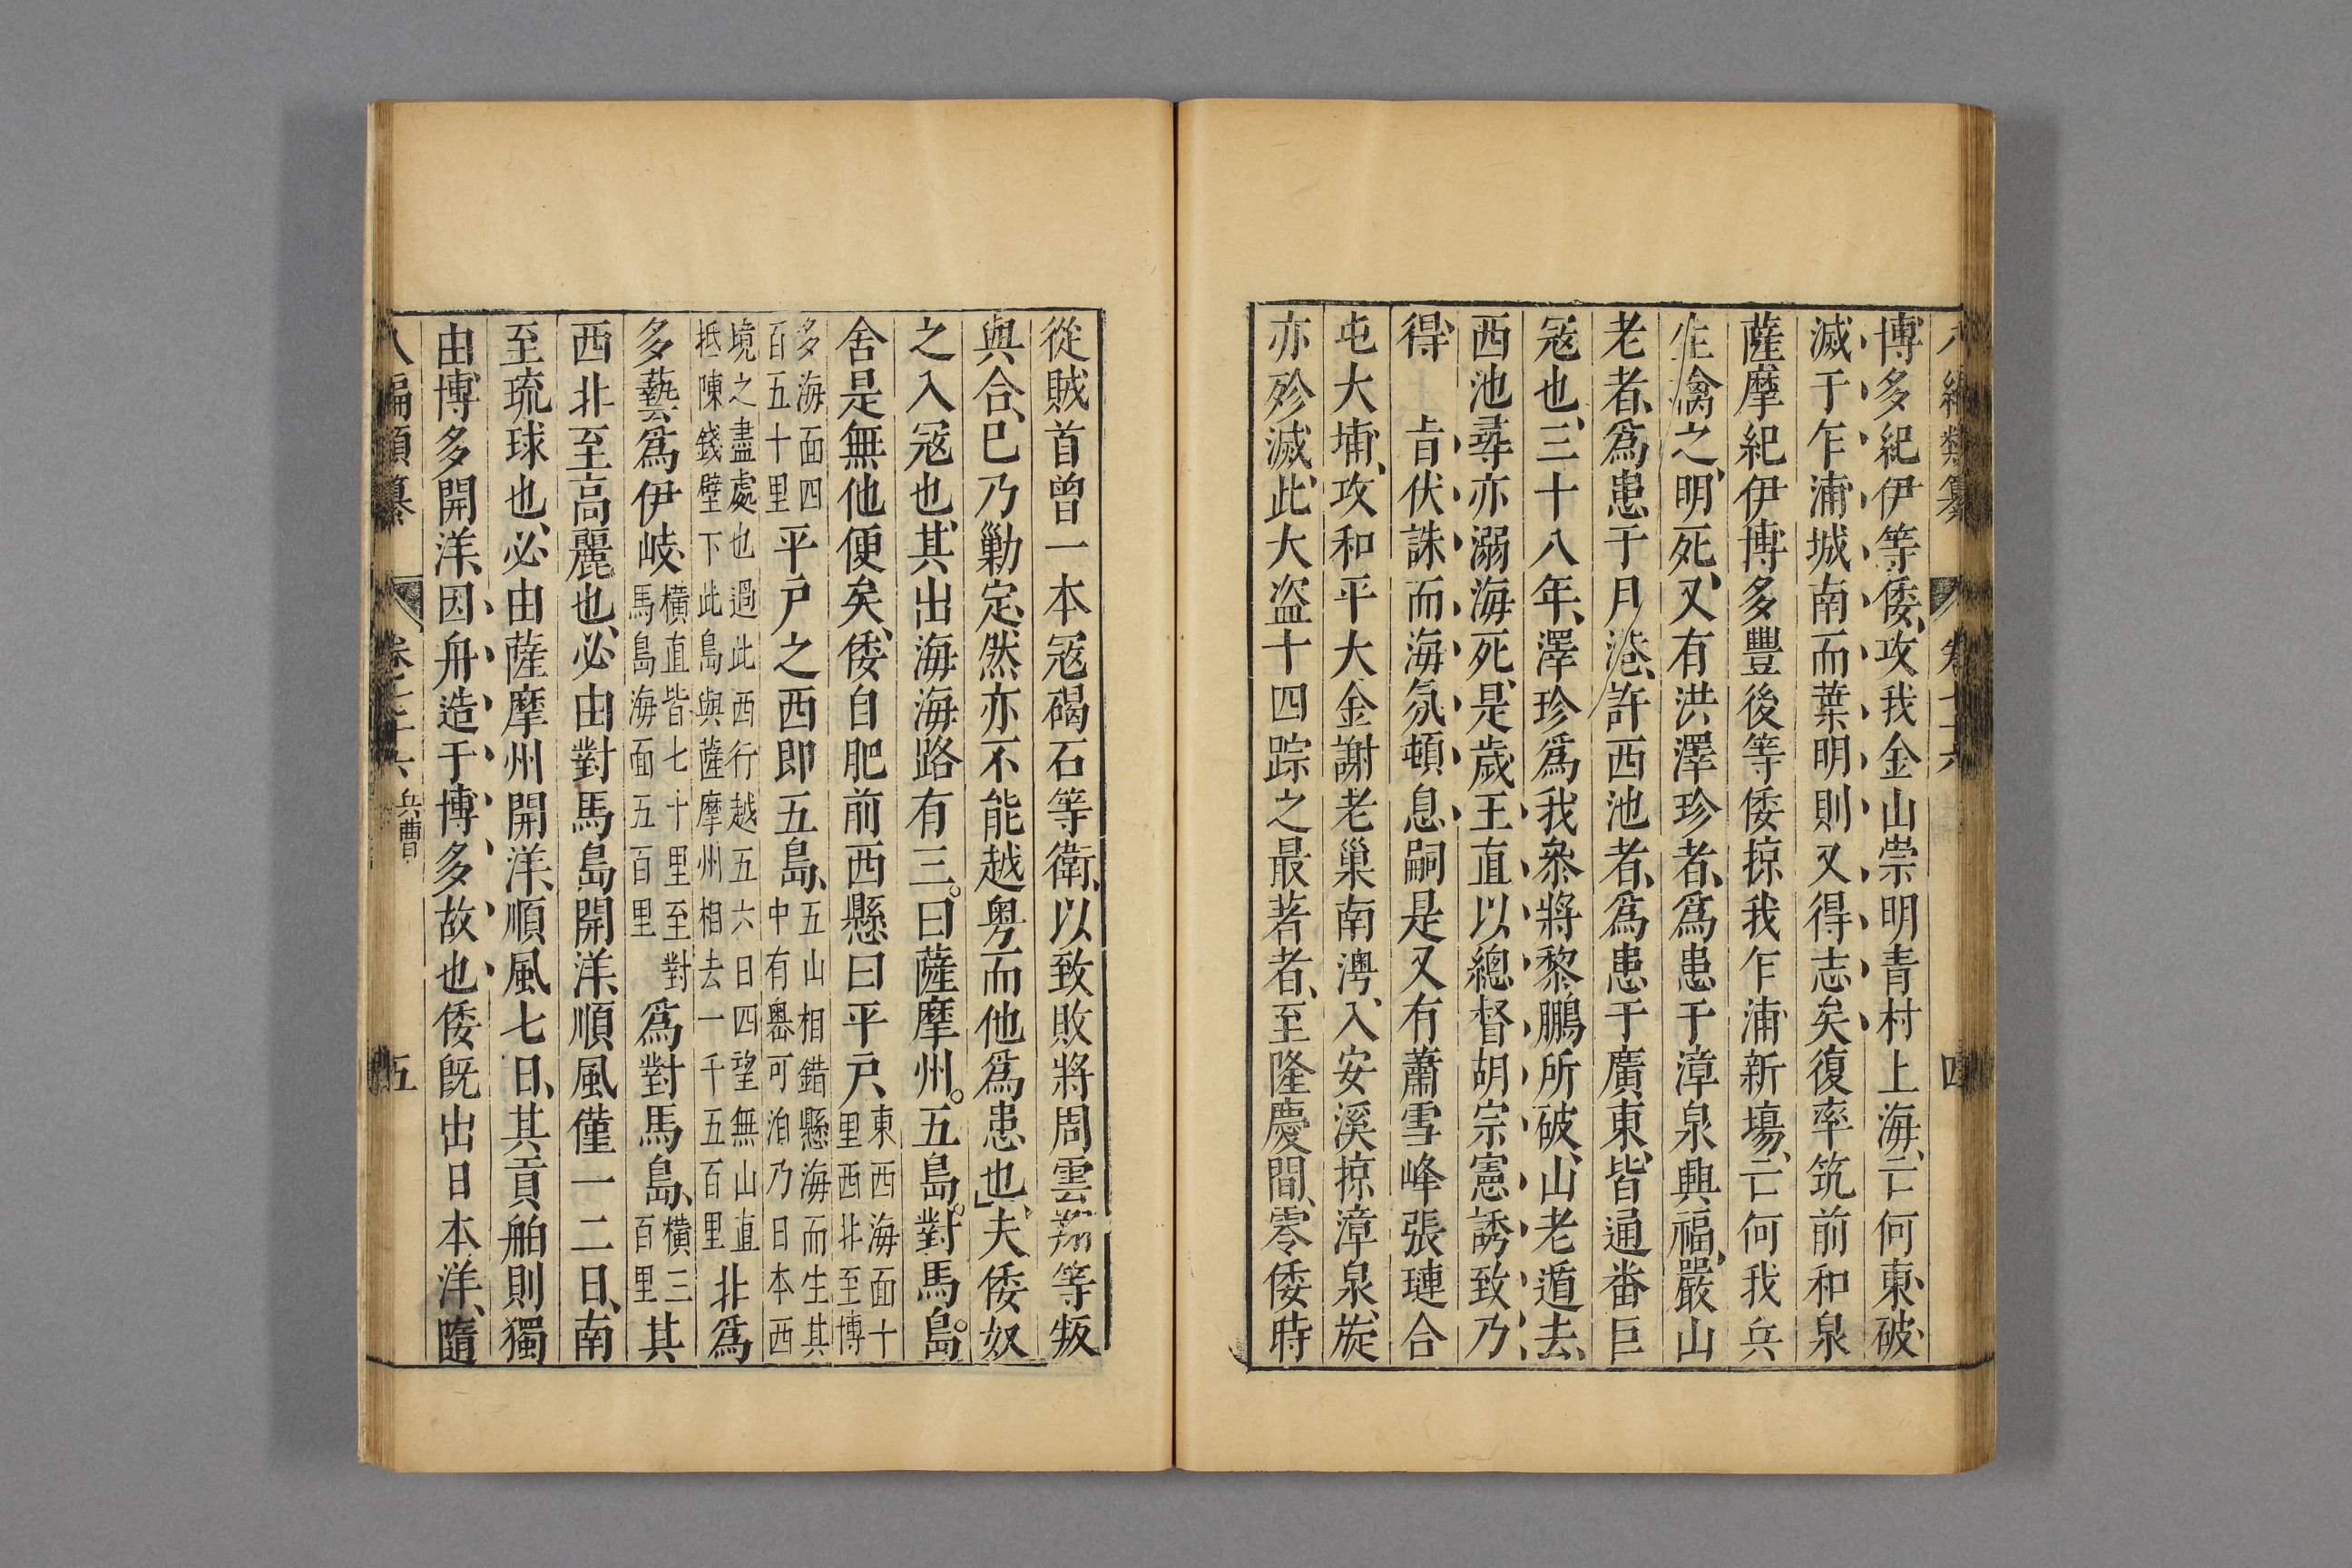 博多紀伊等倭攻我金山崇明青村上海亡何東破
滅于乍浦城南而葉明則又得志矣復率筑前和泉
薩摩紀伊博多豐後等倭掠我乍浦新塲亡何我兵
生禽之明死又有洪澤珍者爲患于漳泉興福嚴山
老者爲患于月港許西池者爲患于廣東皆通番巨
冦也三十八年澤珍爲我叅將黎鵬所破山老遁去
西池尋亦溺海死是歲王直以總督胡宗憲誘致乃
得 旨伏誅而海氛頓息嗣是又有蕭雪峰張璉合
屯大埔攻和平大金謝老巢南澚入安溪掠漳泉旋
亦殄滅此大盜十四踪之最著者至隆慶間零倭時
從賊首曾一本冦碣石等衛以致敗將周雲翔等叛
與合巳乃勦定然亦不能越粤而他爲患也夫倭奴
之入冦也其出海海路有三曰薩摩州五島對馬島
舍是無他便矣倭自肥前西懸曰平戸東西海面十里西北至博
多海面四百五十里平戸之西即五島五山相錯懸海而生其中有嶴可泊乃日本西
境之盡處也過此西行越五六日四望無山直抵陳錢壁下此島與薩摩州相去一千五百里北爲
多藝爲伊岐橫直皆七十里至對馬島海面五百里爲對馬島橫三百里其
西北至高麗也必由對馬島開洋順風僅一二日南
至琉球也必由薩摩州開洋順風七日其貢舶則獨
由博多開洋因舟造于博多故也倭既出日本洋隨
八編類纂 卷七十六 兵曹 五